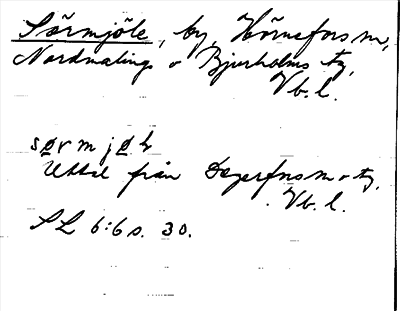 Sörmjöle, by, Hörnefors sn,
Nordmalings o Bjurholms tg,
Vb. l.
sørmjøl
Uttal från Degerfors sn o tg,
Vb. l.
SL 6:6 s. 30.